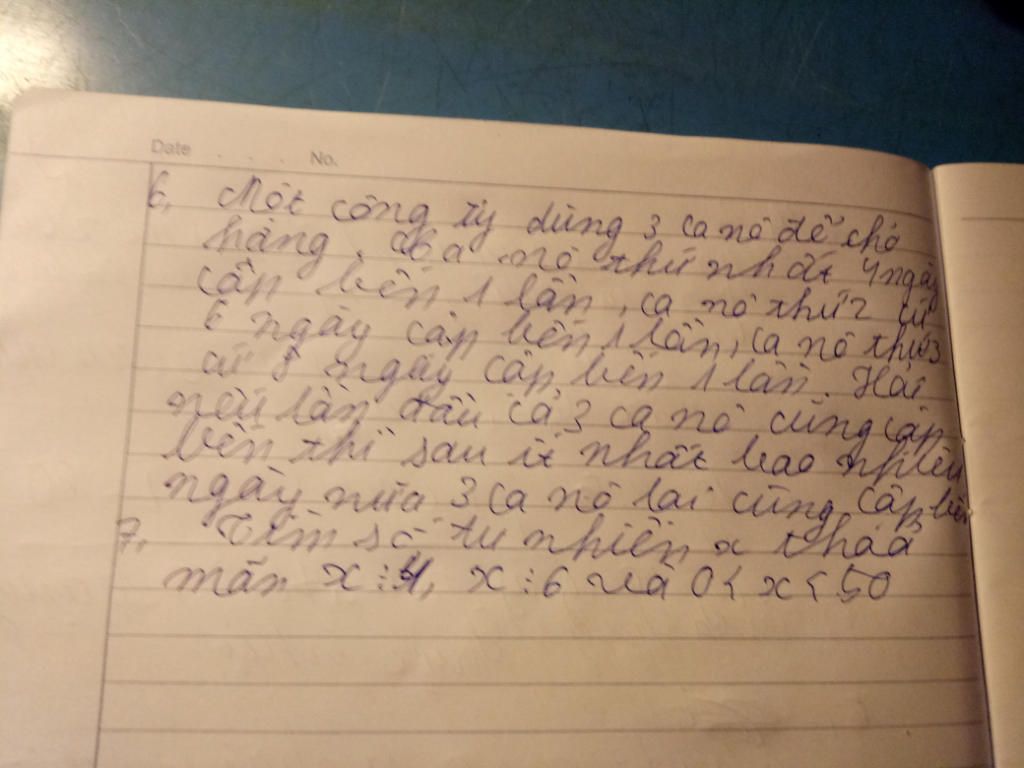 Date . . . No.
6, Một công ty dùng 3 ca nô để chở
hàng. Ca nô thứ nhất 4 ngày
cập bến 1 lần, ca nô thứ 2 cứ
6 ngày cập bến 1 lần, ca nô thứ 3
cứ 8 ngày cập bến 1 lần. Hỏi
nếu lần đầu cả 3 ca nô cùng cập
bến thì sau ít nhất bao nhiêu
ngày nữa 3 ca nô lại cùng cập bến
7, Tìm số tự nhiên x thỏa
mãn x ⋮ 4, x ⋮ 6 và 0 < x < 50